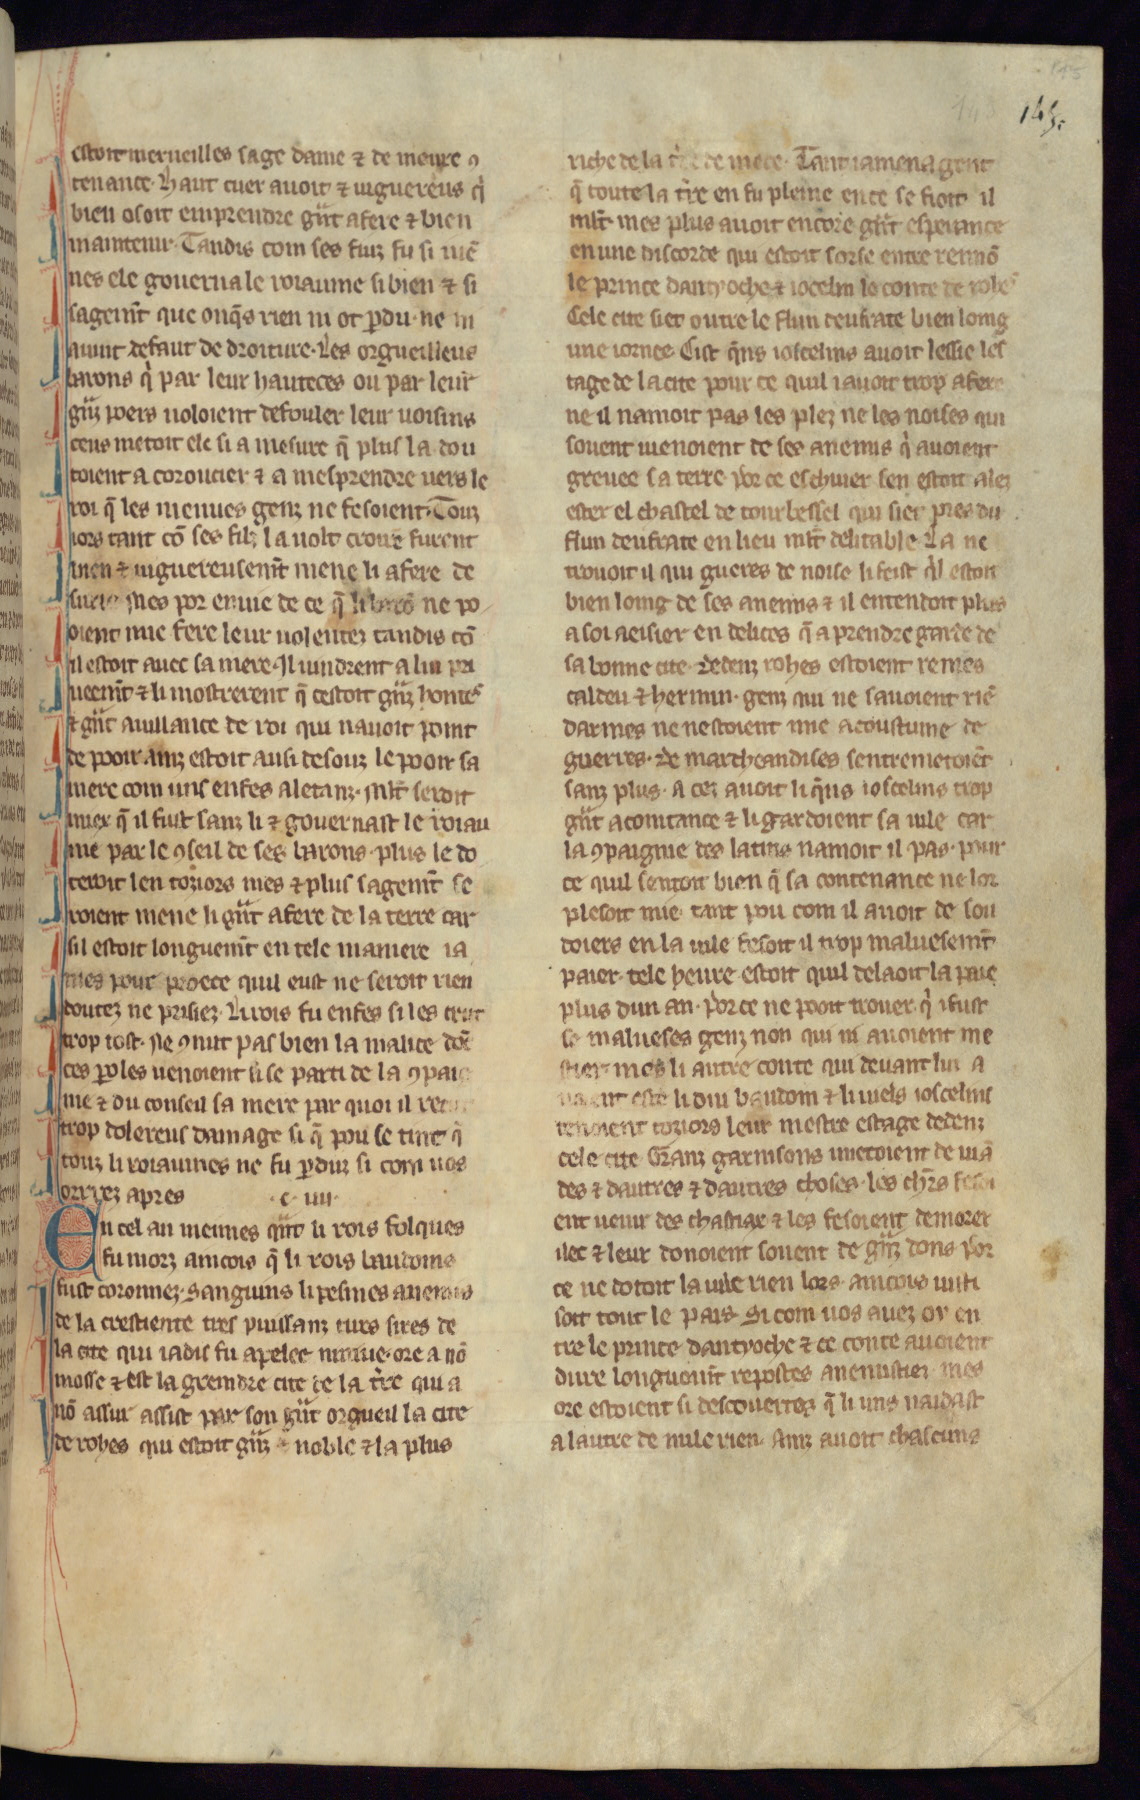 145.
estoit merueilles sage dame ⁊ de meure ꝯ
tenance. Haut cuer auoit ⁊ uiguereus q̇
bien osoit emprendre gñt afere ⁊ bien
maintenir. Tandis com ses fiuz fu si iuē
nes ele gouerna le roiaume si bien ⁊ si
sagem̄t que onq̄s rien ni ot ꝑdu. ne ni
auint defaut de droiture. Les orgueilleus
barons q̇ par leur hauteces ou par leur
gñz poers uoloient defouler leur uoisins
ceus metoit ele si a mesure q̄ plus la dou
toient a coroucier ⁊ a mesprendre uers le
roi q̄ les menues genz ne fesoient. Touz
iors tant cō ses filz la uolt croire furent
bien ⁊ uiguereusem̄t mene li afere de
surie. Mes por enuie de ce q̄ li barō ne po
oient mie fere leur uolentez tandis cō
il estoit auec sa mere. Il uindrent a lui pri
ueem̄t ⁊ li mostrerent q̄ cestoit gñz hontes
⁊ gñt auillance de roi qui nauoit point
de pooir. ainz estoit ausi desouz le pooir sa
mere com uns enfes aletanz. Ml̄t seroit
miex q̄ il fust sanz li ⁊ gouernast le roiau
me par le ꝯseil de ses barons. plus le do
teroit len toziors mes ⁊ plus sagem̄t se
roient mene li gñt afere de la terre car
sil estoit longuem̄t en tele maniere ia
mes pour proece quil eust ne seroit rien
doutez ne prisiez. Li rois fu enfes si les crut
trop tost. Ne ꝯnut pas bien la malice dōt
ces ꝑoles uenoient si se parti de la ꝯpaig
nie ⁊ du conseil sa mere par quoi il
trop dolereus damage si q̄ pou se tint q̄
touz li roiaumes ne fu ꝑduz si com uos
orrez apres .c. iiii.
En cel an meimes qñt li rois folques
fu morz aincois q̄ li rois baudoins
fust coronnez. Sanguins li pesmes anemis
de la crestiente tres puissanz turs sires de
la cite qui iadis fu apelee niniue. ore a nō
mosse ⁊ est la greindre cite de la tr̄re qui a
nō assur assist par son gñt orgueil la cite
de rohes qui estoit gñz noble ⁊ la plus
riche de la tr̄re de mece. Tant i amena gent
q̄ toute la tr̄re en fu pleine en ce se fioit il
ml̄t. mes plus auoit encore gñt esperance
en une discorde qui estoit sorse entre remō
le prince dantyoche ⁊ iocelin le conte de rohes
Cele cite siet outre le flun deufrate bien loing
une iornee. Cist q̄ns ioscelins auoit lessie les
tage de la cite pour ce quil i auoit trop afere
ne il namoit pas les plez ne les noises qui
souent uenoient de ses anemis q̇ auoient
greuee sa terre. Por ce eschiuer sen estoit alez
ester el chastel de tourbessel qui siet pres du
flun deufrate en lieu ml̄t delitable. La ne
trouoit il qui gueres de noise li feist q̇l estoit
bien loing de ses anemis ⁊ il entendoit plus
a soi aeisier en delices q̄ a prendre garde de
sa bonne cite. Dedenz rohes estoient remes
caldeu ⁊ hermin. genz qui ne sauoient riē
darmes ne nestoient mie acoustume de
guerres. De marcheandises sentremetoiēt
sanz plus. A cez auoit li q̄ns ioscelins trop
gñt acointance ⁊ li gardoient sa uile car
la ꝯpaignie des latins namoit il pas. pour
ce quil sentoit bien q̄ sa contenance ne lor
plesoit mie. tant pou com il auoit de sou
doiers en la uile fesoit il trop maluesem̄t
paier. tele heure estoit quil delaoit la paie
plus dun an. Por ce ne pooit trouer q̇ i fust
se malueses genz non qui ni auoient me
stier mes li autre conte qui deuant lui a
uoient este li dui baudoin ⁊ li uiels ioscelins
tenoient toziors leur mestre estage dedenz
cele cite. Granz garnisons metoient de uiā
des ⁊ dautres ⁊ dautres choses. les chr̄s fesoi
ent uenir des chastiax ⁊ les fesoient demorer
ilec ⁊ leur donoient souent de gñz dons. Por
ce ne dotoit la uile rien lors. aincois iusti
soit tout le pais. Si com uos auez oy en
tre le prince dantyoche ⁊ ce conte auoient
dure longuem̄t repostes anemistiez. mes
ore estoient si descouertes q̄ li uns naidast
a lautre de nule rien. Ainz auoit chascuns